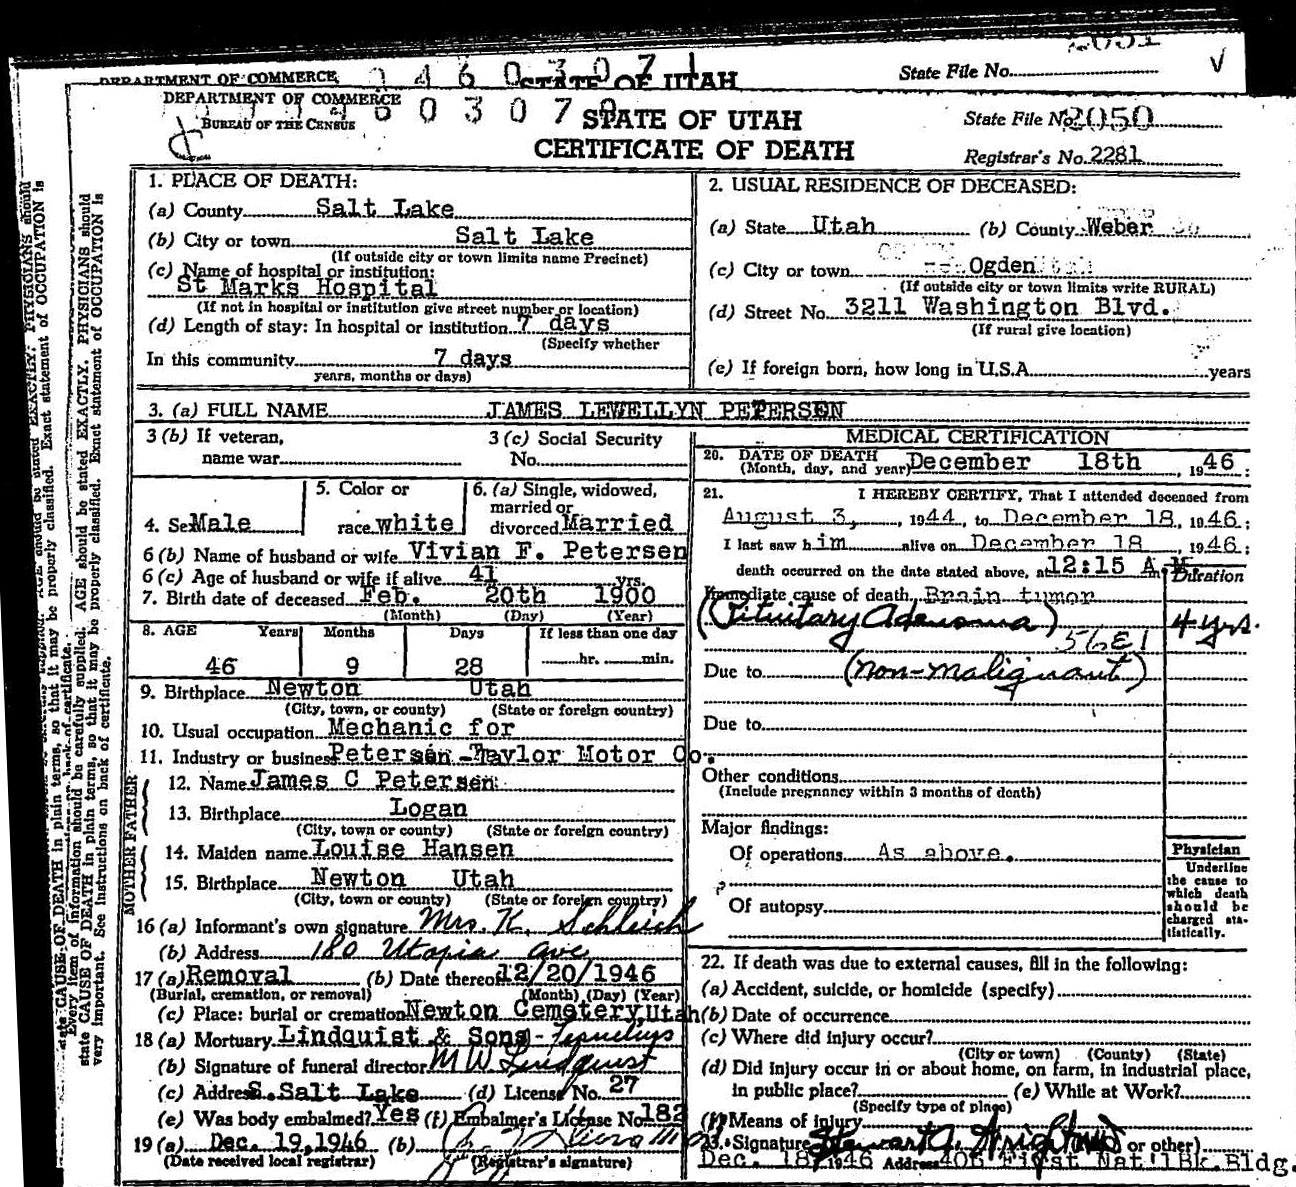 DEPARTMENT OF COMMERCE 0460307 STATE OF UTAH State File No.
DEPARTMENT OF COMMERCE
BUREAU OF THE CENSUS
STATE OF UTAH
CERTIFICATE OF DEATH
State File No. 2050
Registrar's No. 2281
1. PLACE OF DEATH:
(a) County Salt Lake
(b) City or town Salt Lake
(If outside city or town limits name Precinct)
(c) Name of hospital or institution:
St Marks Hospital
(If not in hospital or institution give street number or location)
(d) Length of stay: In hospital or institution 7 days
(Specify whether
In this community 7 days
years, months or days)
2. USUAL RESIDENCE OF DECEASED:
(a) State Utah (b) County Weber
(c) City or town Ogden
(If outside city or town limits write RURAL)
(d) Street No. 3211 Washington Blvd.
(If rural give location)
(e) If foreign born, how long in U.S.A. years
3. (a) FULL NAME JAMES LEWELLYN PETERSEN
3 (b) If veteran,
name war
3 (c) Social Security
No.
4. Sex Male
5. Color or
race white
6. (a) Single, widowed,
married or
divorced Married
6 (b) Name of husband or wife Vivian F. Petersen
6 (c) Age of husband or wife if alive 41 yrs.
7. Birth date of deceased Feb. 20th 1900
(Month) (Day) (Year)
8. AGE Years Months Days If less than one day
46 9 28 hr. min.
9. Birthplace Newton Utah
(City, town, or county) (State or foreign country)
10. Usual occupation Mechanic for
11. Industry or business Petersen-Taylor Motor Co.
FATHER
12. Name James C Petersen
13. Birthplace Logan
(City, town or county) (State or foreign country)
MOTHER
14. Maiden name Louise Hansen
15. Birthplace Newton Utah
(City, town or county) (State or foreign country)
16 (a) Informant's own signature Mrs. K. Schleich
(b) Address 180 Utopia Ave
17 (a) Removal (b) Date thereof 12/20/1946
(Burial, cremation, or removal) (Month) (Day) (Year)
(c) Place: burial or cremation Newton Cemetery, Utah
18 (a) Mortuary Lindquist & Sons
(b) Signature of funeral director M W Lindquist
(c) Address S. Salt Lake (d) License No. 27
(e) Was body embalmed? Yes (f) Embalmer's License No. 182
19 (a) Dec. 19, 1946 (b)
(Date received local registrar) (Registrar's signature)
MEDICAL CERTIFICATION
20. DATE OF DEATH
(Month, day, and year) December 18th, 1946:
21. I HEREBY CERTIFY, That I attended deceased from
August 3, 1944, to December 18, 1946:
I last saw him alive on December 18, 1946:
death occurred on the date stated above, at 12:15 A M.
Duration
Immediate cause of death Brain tumor
(Pituitary Adenoma) 4 yrs.
56E1
Due to (non-malignant)
Due to
Other conditions
(Include pregnancy within 3 months of death)
Major findings:
Of operations As above.
Of autopsy
Physician
Underline
the cause to
which death
should be
charged sta-
tistically.
22. If death was due to external causes, fill in the following:
(a) Accident, suicide, or homicide (specify)
(b) Date of occurrence
(c) Where did injury occur?
(City or town) (County) (State)
(d) Did injury occur in or about home, on farm, in industrial place,
in public place? (e) While at Work?
(Specify type of place)
(f) Means of injury
23. Signature Stewart A. Wright or other)
Dec. 18, 1946 Address 406 First Nat'l Bk. Bldg.
state CAUSE OF DEATH in plain terms, so that it may be properly classified. Exact statement of OCCUPATION is
Every item of information should be carefully supplied. AGE should be stated EXACTLY. PHYSICIANS should
very important. See instructions on back of certificate.